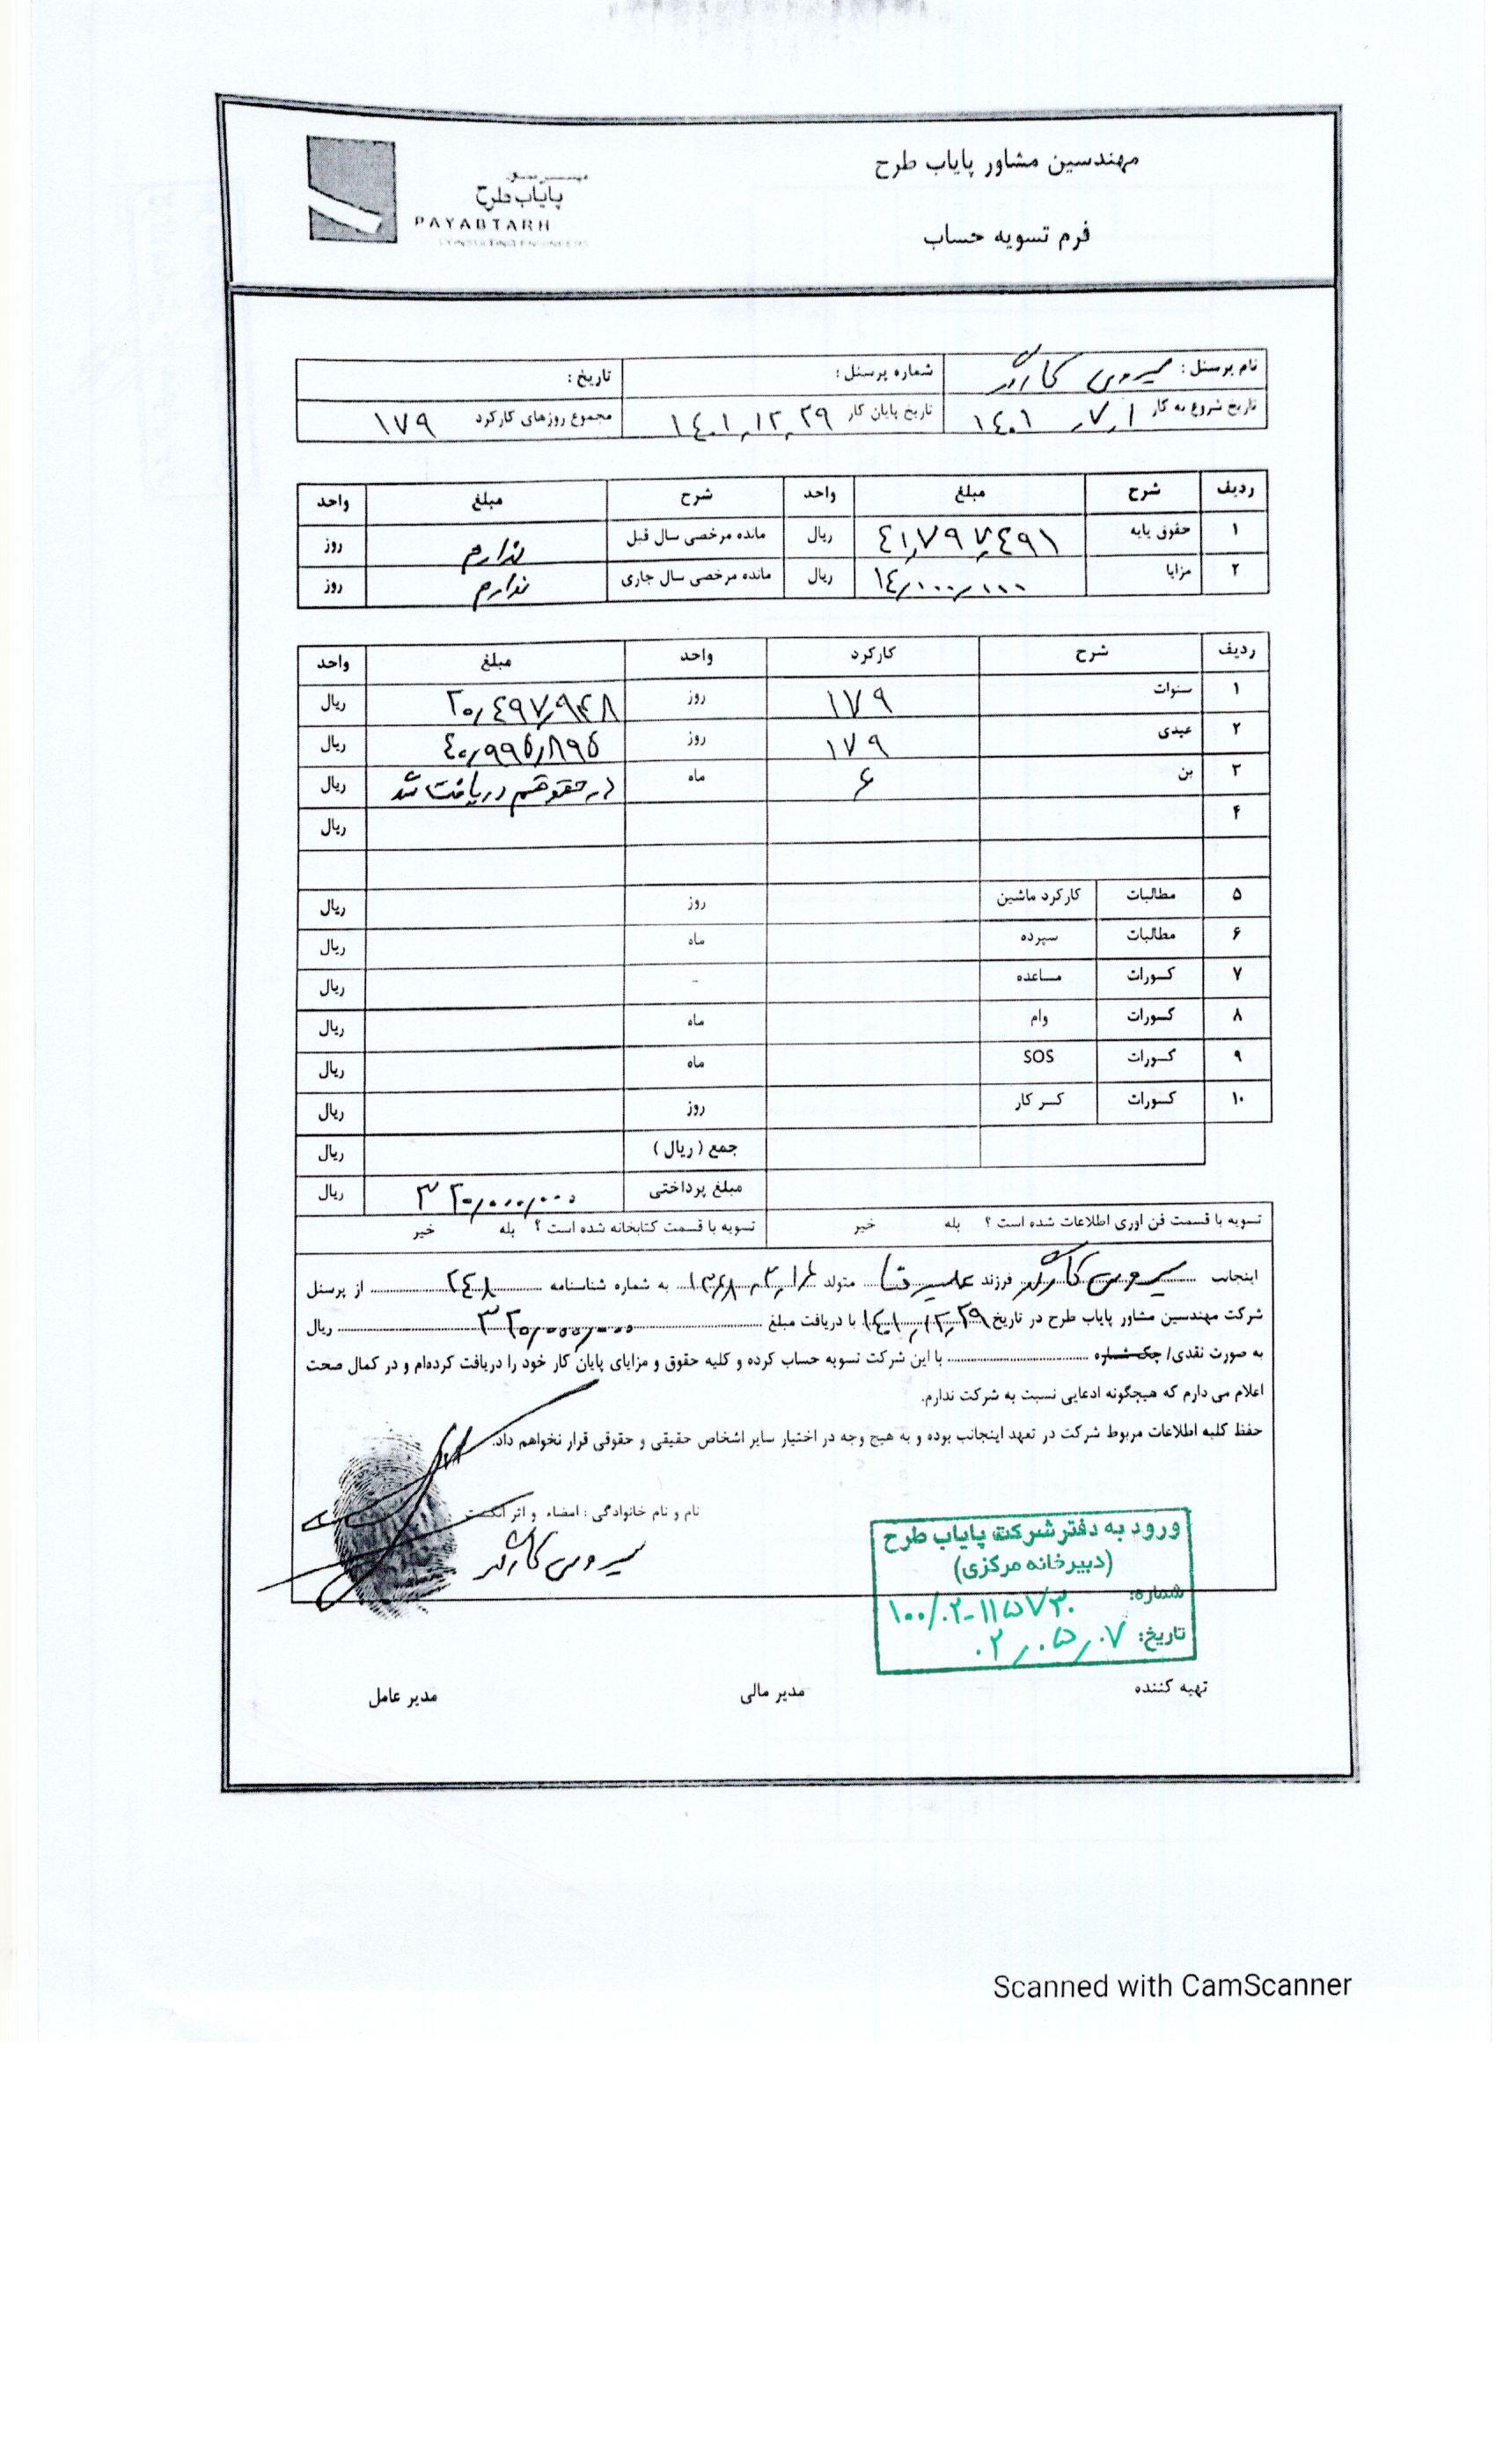 مهندسین مشاور پایاب طرح
فرم تسویه حساب
پایاب طرح
PAYABTARH
CONSULTING ENGINEERS
نام پرسنل : سیروس کارگر شماره پرسنل : تاریخ :
تاریخ شروع به کار ۱۴۰۱٫۷٫۱ تاریخ پایان کار ۱۴۰۱٫۱۲٫۲۹ مجموع روزهای کارکرد ۱۷۹
ردیف شرح مبلغ واحد شرح مبلغ واحد
۱ حقوق پایه ۴۱٫۷۹۷٫۴۹۱ ریال مانده مرخصی سال قبل ندارم روز
۲ مزایا ۱۴٫۰۰۰٫۰۰۰ ریال مانده مرخصی سال جاری ندارم روز
ردیف شرح کارکرد واحد مبلغ واحد
۱ سنوات ۱۷۹ روز ۲۰٫۴۹۷٫۹۴۸ ریال
۲ عیدی ۱۷۹ روز ۴۰٫۹۹۵٫۸۹۵ ریال
۳ بن ۶ ماه در حقوقم دریافت شد ریال
۴ ریال
۵ مطالبات کارکرد ماشین روز ریال
۶ مطالبات سپرده ماه ریال
۷ کسورات مساعده - ریال
۸ کسورات وام ماه ریال
۹ کسورات SOS ماه ریال
۱۰ کسورات کسر کار روز ریال
جمع ( ریال ) ریال
مبلغ پرداختی ۳۲۰٫۰۰۰٫۰۰۰ ریال
تسویه با قسمت فن اوری اطلاعات شده است ؟ بله خیر تسویه با قسمت کتابخانه شده است ؟ بله خیر
اینجانب سیروس کارگر فرزند علیرضا متولد به شماره شناسنامه ۲۴۸ از پرسنل
شرکت مهندسین مشاور پایاب طرح در تاریخ ۱۴۰۱٫۱۲٫۲۹ با دریافت مبلغ ۳۲۰٫۰۰۰٫۰۰۰ ریال
به صورت نقدی/ چک شماره با این شرکت تسویه حساب کرده و کلیه حقوق و مزایای پایان کار خود را دریافت کرده‌ام و در کمال صحت
اعلام می دارم که هیچگونه ادعایی نسبت به شرکت ندارم.
حفظ کلیه اطلاعات مربوط شرکت در تعهد اینجانب بوده و به هیچ وجه در اختیار سایر اشخاص حقیقی و حقوقی قرار نخواهم داد.
نام و نام خانوادگی : امضاء و اثر انگشت
سیروس کارگر
ورود به دفتر شرکت پایاب طرح
(دبیرخانه مرکزی)
شماره: ۱۰۰/۰۲-۱۱۵۷۳۰
تاریخ: ۰۲٫۰۵٫۰۷
تهیه کننده مدیر مالی مدیر عامل
Scanned with CamScanner